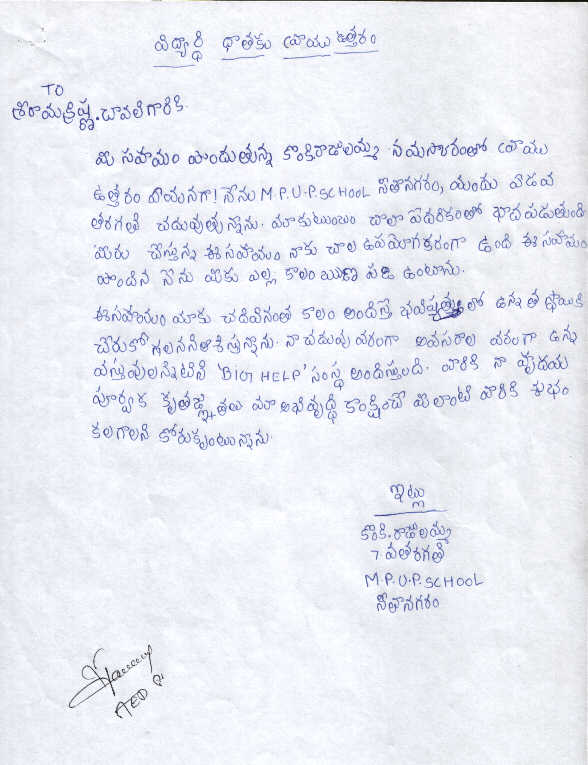 విద్యార్థి దాతకు వ్రాయు ఉత్తరం
TO
శ్రీరామకృష్ణ. చావలి గారికి.
మీ సహాయం పొందుతున్న కొంకి రాజులమ్మ నమస్కారంతో వ్రాయు
ఉత్తరం ఏమనగా! నేను M.P.U.P.SCHOOL సీతానగరం, యందు ఏడవ
తరగతి చదువుతున్నాను. మా కుటుంబం చాలా పేదరికంతో బాధ పడుతుంది
మీరు చేస్తున్న ఈ సహాయం నాకు చాల ఉపయోగకరంగా ఉంది ఈ సహాయం
పొందిన నేను మీకు ఎల్ల కాలం ఋణ పడి ఉంటాను.
ఈ సహాయం మాకు చదివినంత కాలం అందిస్తే భవిష్యత్తులో ఉన్నత స్థాయికి
చేరుకోగలనని ఆశిస్తున్నాను. నా చదువు పరంగా అవసరాల పరంగా ఉన్న
వస్తువులన్నిటిని 'BIGT HELP' సంస్థ అందిస్తుంది. వారికి నా హృదయ
పూర్వక కృతజ్ఞతలు మా అభివృద్ధి కాంక్షించే మీలాంటి వారికి శుభం
కలగాలని కోరుకుంటున్నాను.
ఇట్లు
కొంకి. రాజులమ్మ
7 వ తరగతి
M.P.U.P.SCHOOL
సీతానగరం